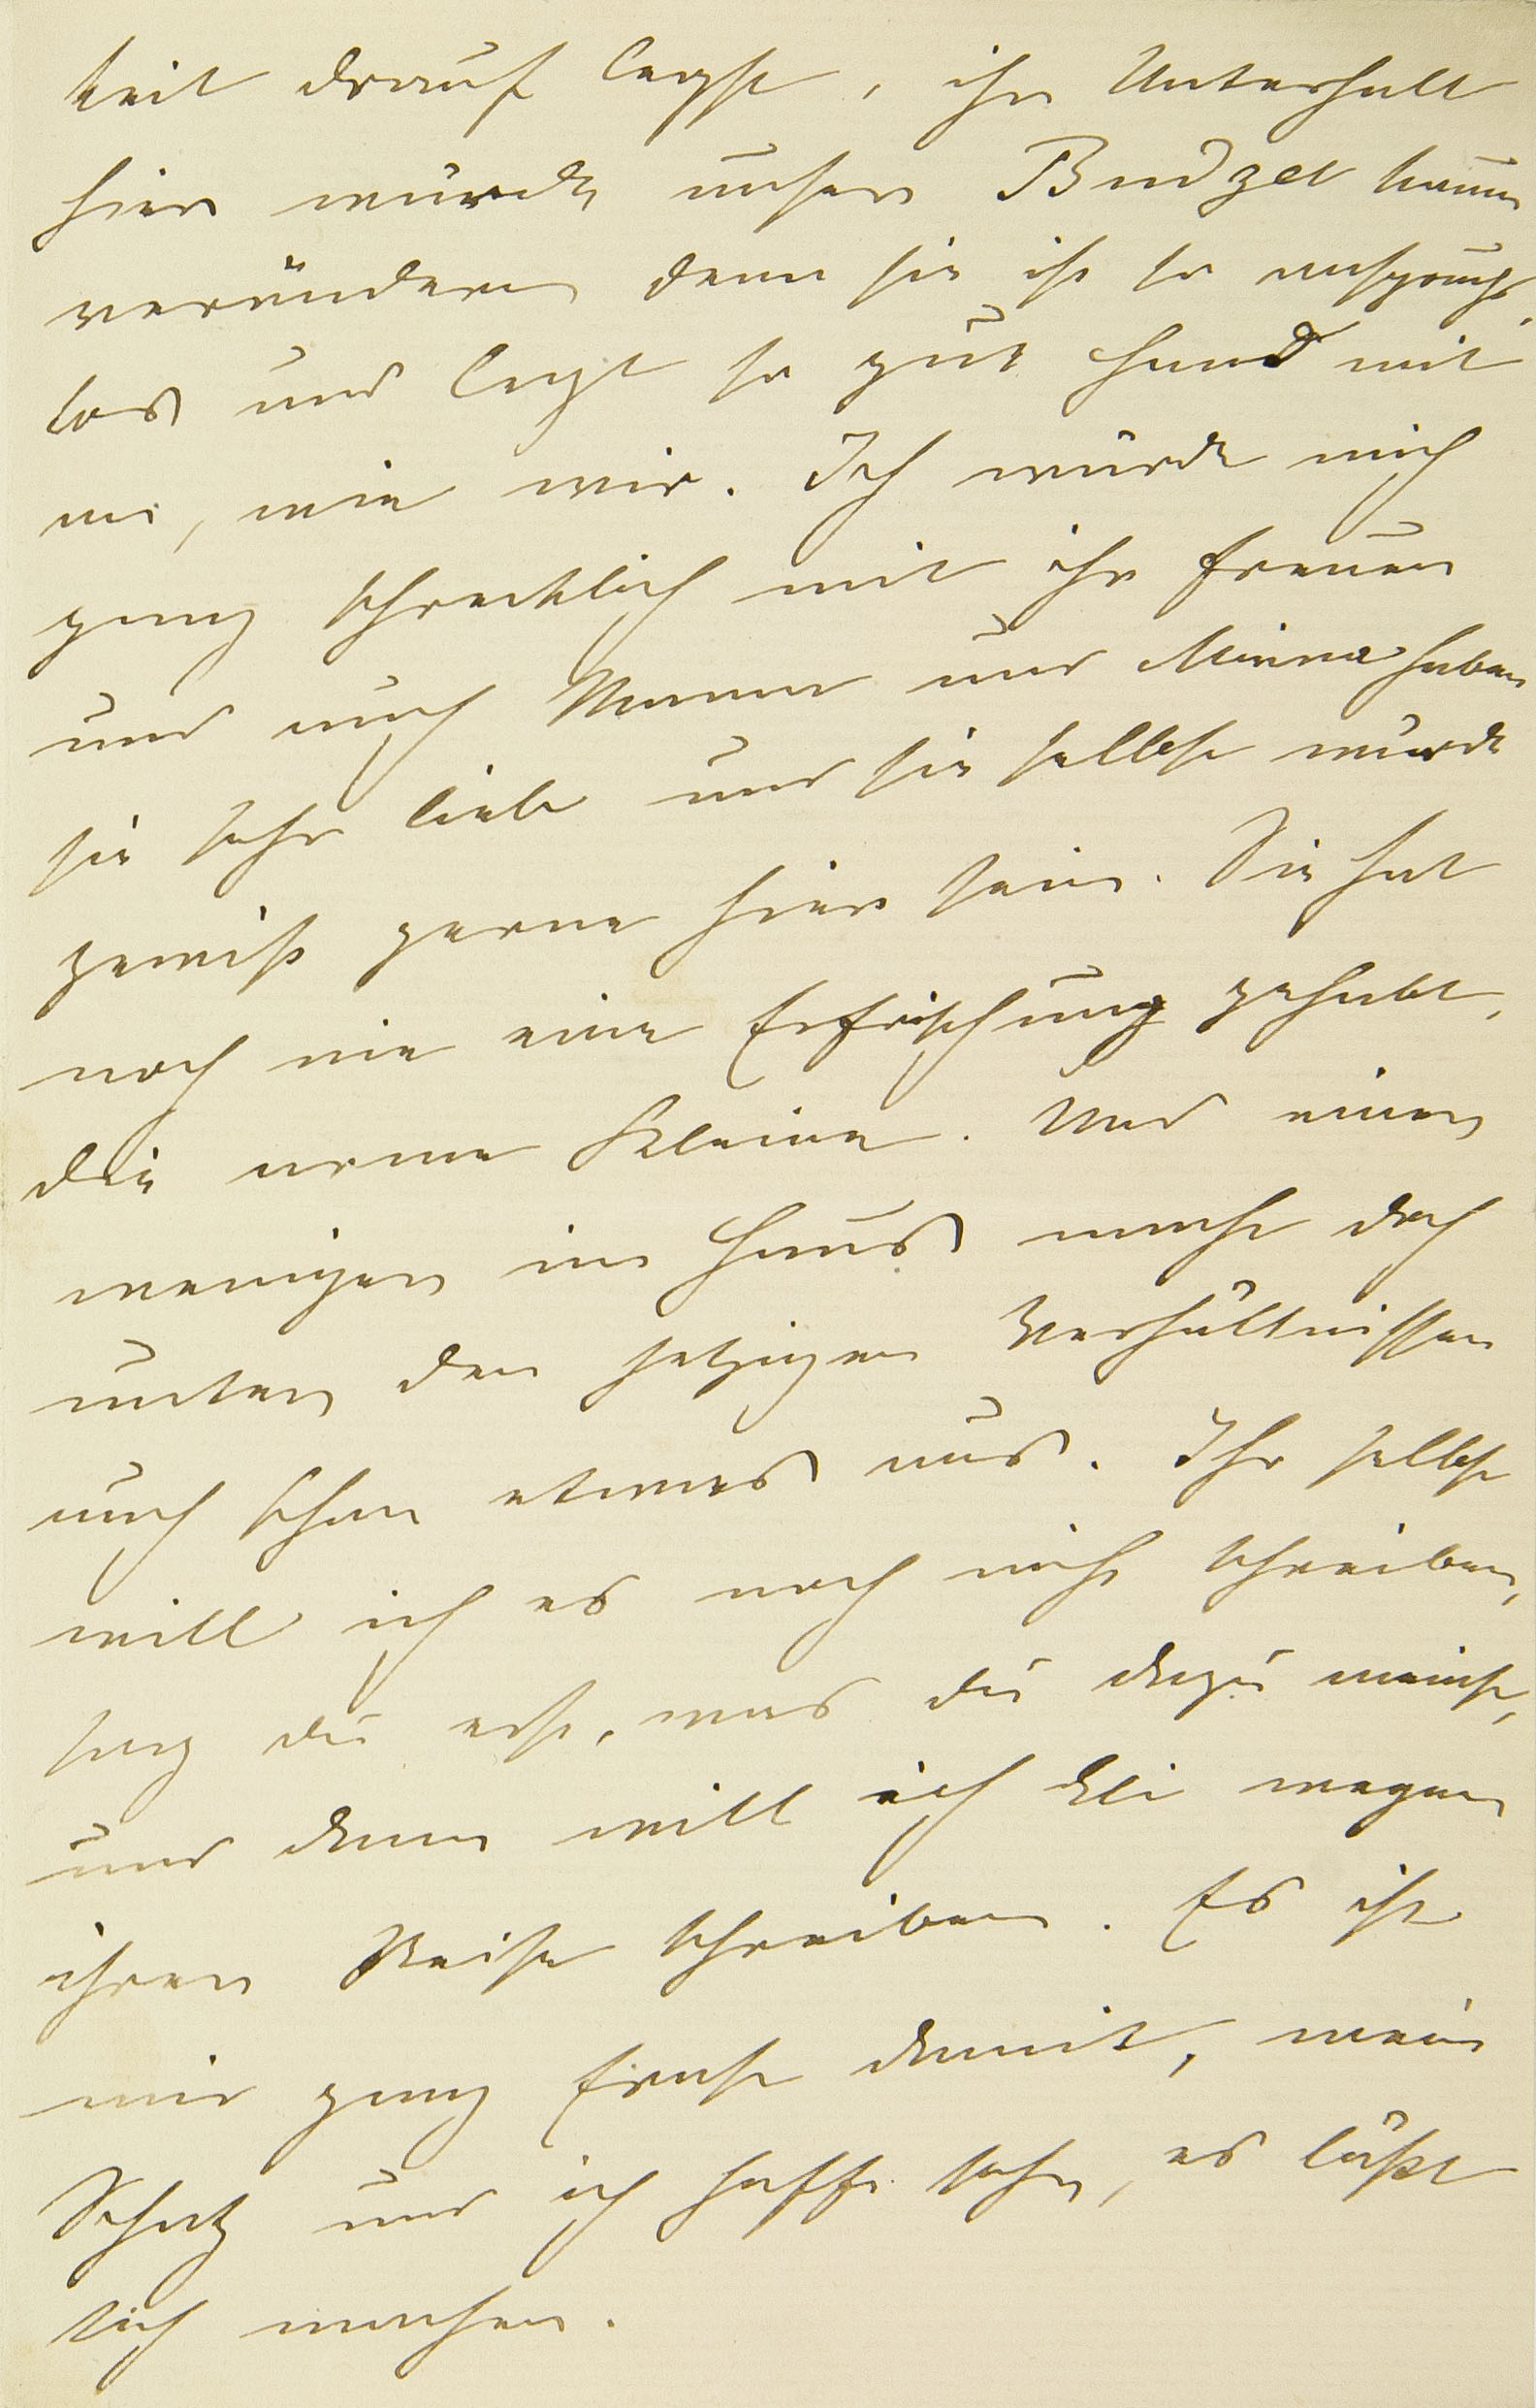 keit drauf legst, ihr Unterhalt
hier würde unser Budget kaum
verändern denn sie ist so anspruchs-
los und legt so gut Hand mit
an, wie wir. Ich würde mich
ganz schrecklich mit ihr freuen
und auch Mama und Minna haben
sie sehr lieb und sie selbst würde
gewiß gerne hier sein. Sie hat
noch nie eine Erfrischung gehabt,
die arme Kleine. Und einen
weniger im Haus macht doch
unter den jetzigen Verhältnissen
auch schon etwas aus. Ihr selbst
will ich es noch nicht schreiben,
sag du erst, was du dazu meinst,
und dann will ich Eli wegen
ihrer Reise schreiben. Es ist
mir ganz Ernst damit, mein
Schatz und ich hoffe sehr, es läßt
sich machen.